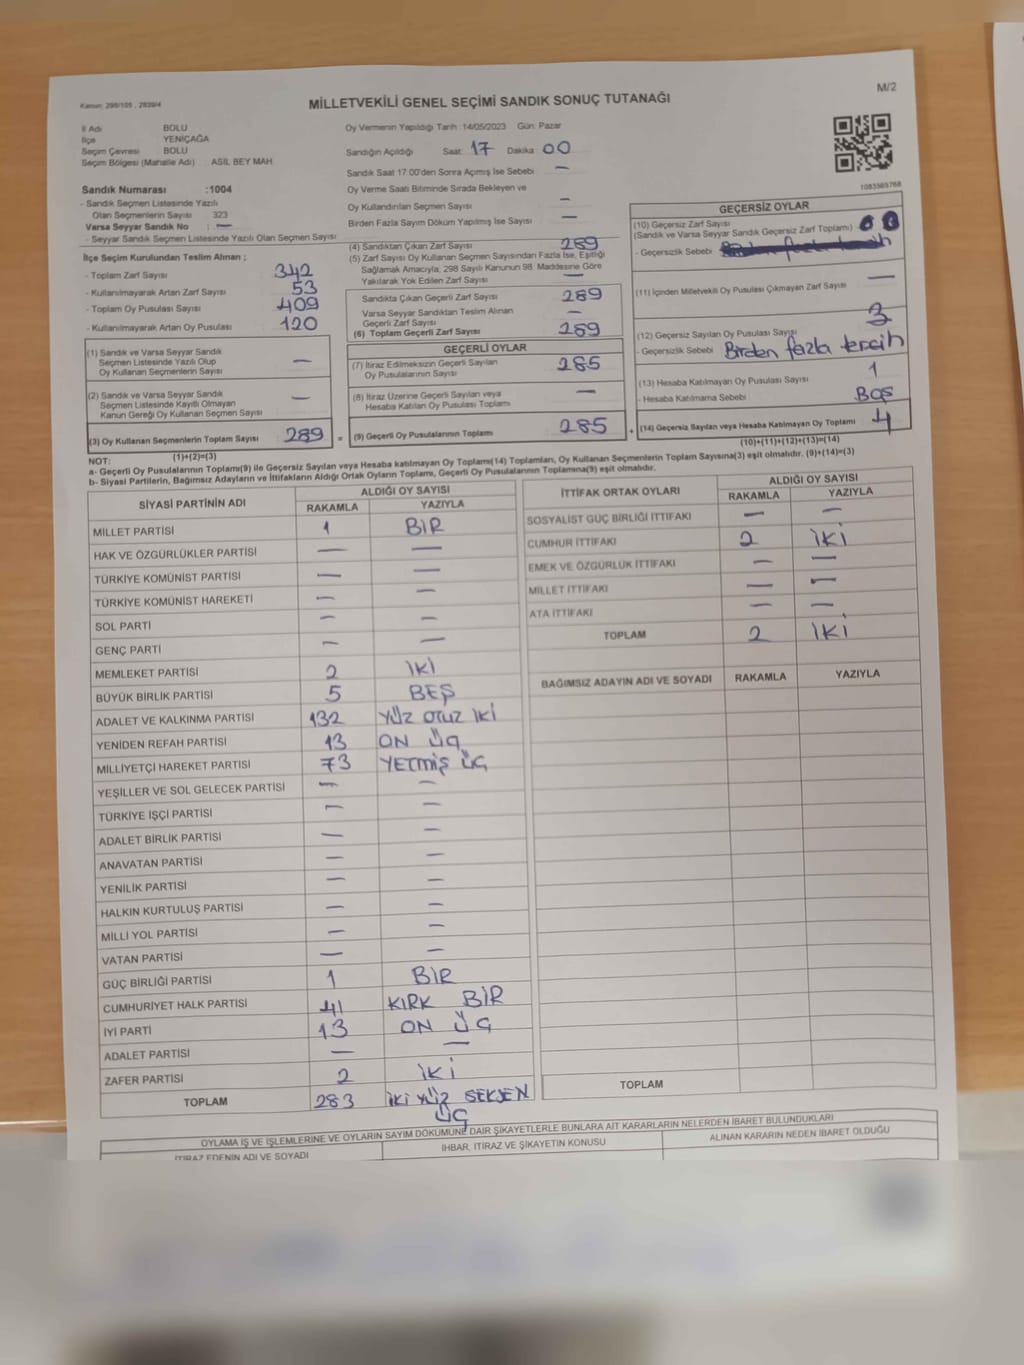 M/2
Kanun: 298/105 , 2839/4
MİLLETVEKİLİ GENEL SEÇİMİ SANDIK SONUÇ TUTANAĞI
İl Adı BOLU
İlçe YENİÇAĞA
Seçim Çevresi BOLU
Seçim Bölgesi (Mahalle Adı) ASIL BEY MAH.
Sandık Numarası :1004
- Sandık Seçmen Listesinde Yazılı
Olan Seçmenlerin Sayısı 323
Varsa Seyyar Sandık No : —
- Seyyar Sandık Seçmen Listesinde Yazılı Olan Seçmen Sayısı
İlçe Seçim Kurulundan Teslim Alınan ;
- Toplam Zarf Sayısı 342
- Kullanılmayarak Artan Zarf Sayısı 53
- Toplam Oy Pusulası Sayısı 409
- Kullanılmayarak Artan Oy Pusulası 120
(1) Sandık ve Varsa Seyyar Sandık
Seçmen Listesinde Yazılı Olup
Oy Kullanan Seçmenlerin Sayısı —
(2) Sandık ve Varsa Seyyar Sandık
Seçmen Listesinde Kayıtlı Olmayan
Kanun Gereği Oy Kullanan Seçmen Sayısı —
(3) Oy Kullanan Seçmenlerin Toplam Sayısı 289 =
(1)+(2)=(3)
Oy Vermenin Yapıldığı Tarih :14/05/2023 Gün: Pazar
Sandığın Açıldığı Saat: 17 Dakika: 00
Sandık Saat 17.00'den Sonra Açımış İse Sebebi —
Oy Verme Saati Bitiminde Sırada Bekleyen ve
Oy Kullandırılan Seçmen Sayısı —
Birden Fazla Sayım Döküm Yapılmış İse Sayısı —
(4) Sandıktan Çıkan Zarf Sayısı 289
(5) Zarf Sayısı Oy Kullanan Seçmen Sayısından Fazla İse, Eşitliği
Sağlamak Amacıyla, 298 Sayılı Kanunun 98. Maddesine Göre
Yakılarak Yok Edilen Zarf Sayısı —
Sandıkta Çıkan Geçerli Zarf Sayısı 289
Varsa Seyyar Sandıktan Teslim Alınan
Geçerli Zarf Sayısı —
(6) Toplam Geçerli Zarf Sayısı 289
GEÇERLİ OYLAR
(7) İtiraz Edilmeksizin Geçerli Sayılan
Oy Pusulalarının Sayısı 285
(8) İtiraz Üzerine Geçerli Sayılan veya
Hesaba Katılan Oy Pusulası Toplamı —
(9) Geçerli Oy Pusulalarının Toplamı 285 +
1083565768
GEÇERSİZ OYLAR
(10) Geçersiz Zarf Sayısı
(Sandık ve Varsa Seyyar Sandık Geçersiz Zarf Toplamı)
- Geçersizlik Sebebi
(11) İçinden Milletvekili Oy Pusulası Çıkmayan Zarf Sayısı —
(12) Geçersiz Sayılan Oy Pusulası Sayısı 3
- Geçersizlik Sebebi Birden fazla tercih
(13) Hesaba Katılmayan Oy Pusulası Sayısı 1
- Hesaba Katılmama Sebebi BOŞ
(14) Geçersiz Sayılan veya Hesaba Katılmayan Oy Toplamı 4
(10)+(11)+(12)+(13)=(14)
NOT:
a- Geçerli Oy Pusulalarının Toplamı(9) ile Geçersiz Sayılan veya Hesaba katılmayan Oy Toplamı(14) Toplamları, Oy Kullanan Seçmenlerin Toplam Sayısına(3) eşit olmalıdır. (9)+(14)=(3)
b- Siyasi Partilerin, Bağımsız Adayların ve İttifakların Aldığı Ortak Oyların Toplamı, Geçerli Oy Pusulalarının Toplamına(9) eşit olmalıdır.
SİYASİ PARTİNİN ADI ALDIĞI OY SAYISI
RAKAMLA YAZIYLA
MİLLET PARTİSİ 1 BİR
HAK VE ÖZGÜRLÜKLER PARTİSİ — —
TÜRKİYE KOMÜNİST PARTİSİ — —
TÜRKİYE KOMÜNİST HAREKETİ — —
SOL PARTİ — —
GENÇ PARTİ — —
MEMLEKET PARTİSİ 2 İKİ
BÜYÜK BİRLİK PARTİSİ 5 BEŞ
ADALET VE KALKINMA PARTİSİ 132 YÜZ OTUZ İKİ
YENİDEN REFAH PARTİSİ 13 ON ÜÇ
MİLLİYETÇİ HAREKET PARTİSİ 73 YETMİŞ ÜÇ
YEŞİLLER VE SOL GELECEK PARTİSİ — —
TÜRKİYE İŞÇİ PARTİSİ — —
ADALET BİRLİK PARTİSİ — —
ANAVATAN PARTİSİ — —
YENİLİK PARTİSİ — —
HALKIN KURTULUŞ PARTİSİ — —
MİLLİ YOL PARTİSİ — —
VATAN PARTİSİ — —
GÜÇ BİRLİĞİ PARTİSİ 1 BİR
CUMHURİYET HALK PARTİSİ 41 KIRK BİR
İYİ PARTİ 13 ON ÜÇ
ADALET PARTİSİ — —
ZAFER PARTİSİ 2 İKİ
TOPLAM 283 İKİ YÜZ SEKSEN
ÜÇ
İTTİFAK ORTAK OYLARI ALDIĞI OY SAYISI
RAKAMLA YAZIYLA
SOSYALİST GÜÇ BİRLİĞİ İTTİFAKI — —
CUMHUR İTTİFAKI 2 İKİ
EMEK VE ÖZGÜRLÜK İTTİFAKI — —
MİLLET İTTİFAKI — —
ATA İTTİFAKI — —
TOPLAM 2 İKİ
BAĞIMSIZ ADAYIN ADI VE SOYADI RAKAMLA YAZIYLA
TOPLAM
OYLAMA İŞ VE İŞLEMLERİNE VE OYLARIN SAYIM DÖKÜMÜNE DAİR ŞİKAYETLERLE BUNLARA AİT KARARLARIN NELERDEN İBARET BULUNDUKLARI
İTİRAZ EDENİN ADI VE SOYADI İHBAR, İTİRAZ VE ŞİKAYETİN KONUSU ALINAN KARARIN NEDEN İBARET OLDUĞU